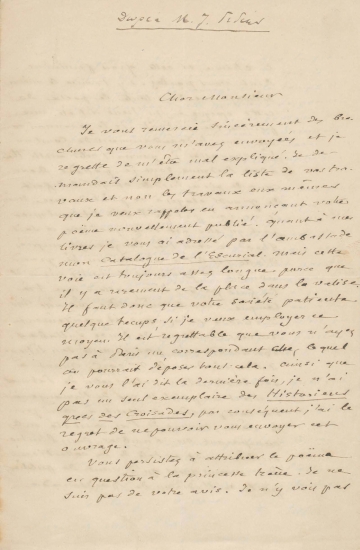 Cher Monsieur
Je vous remercie sincèrement des bro
chures que vous m'avez envoyées et je
regrette de m'être mal expliqué. Je de-
mandais simplement la liste de vos tra-
vaux et non les travaux eux mêmes
que je veux rappeler en annonçant votre
poëme nouvellement publié. Quant à mes
livres je vous ai adressé par l'ambassade
mon Catalogue de l'Escurial. Mais cette
voie est toujours assez longue parce que
il y a rarement de la place dans la valise.
Il faut donc que votre Société patiente
quelque temps si je veux employer ce
moyen. Il est regrettable que vous n'ayez
pas à Paris un correspondant chez lequel
on pourrait déposer tout cela. Ainsi que
je vous l'ai dit la dernière fois, je n'ai
pas un seul exemplaire des Historiens
grecs des Croisades, par conséquent j'ai le
regret de ne pouvoir vous envoyer cet
ouvrage.
Vous persistez à attribuer le poëme
en question à la princesse Irène. Je ne
suis pas de votre avis. Je n'y vois pas